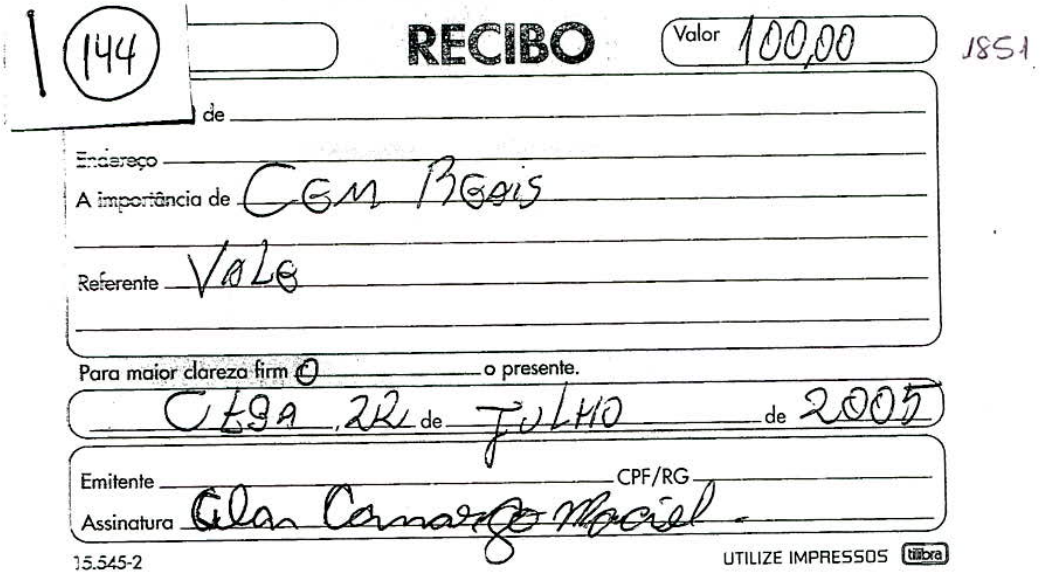 144
RECIBO Valor 100,00 1851
de
Endereço
A importância de Cem Reais
Referente Vale
Para maior clareza firm o o presente.
22 de JULHO de 2005
Emitente CPF/RG
Assinatura Camargo Maciel
15.545-2 UTILIZE IMPRESSOS tilibra